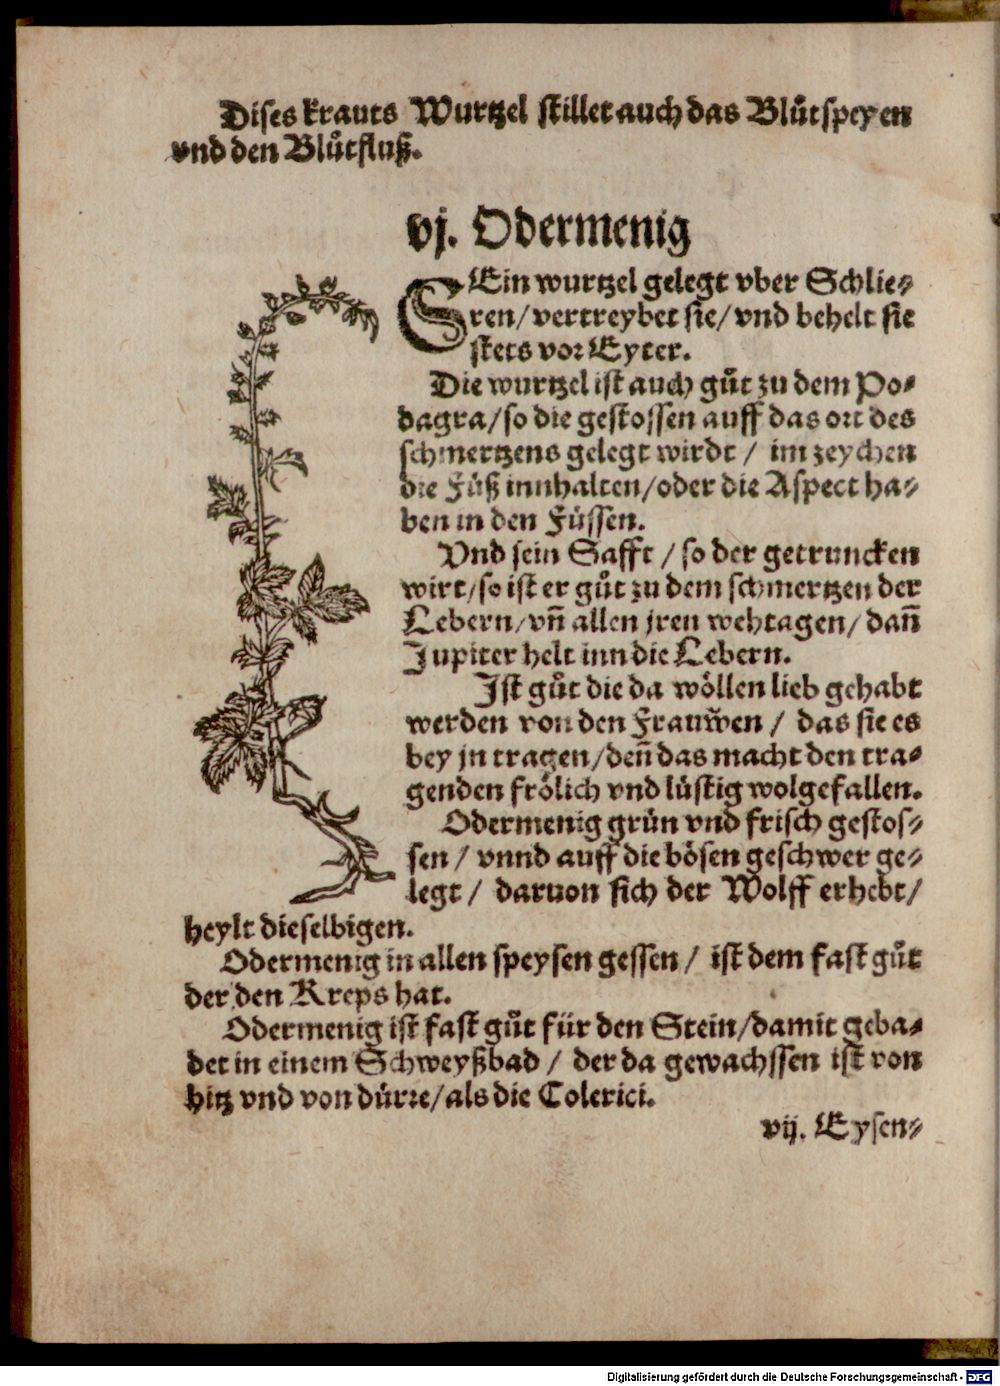 Dises krauts Wurtzel stillet auch das Blůtspeyen
vnd den Blůtfluß.
vj. Odermenig
SEin wurtzel gelegt vber Schlie⸗
ren/ vertreybet sie/ vnd behelt sie
stets vor Eyter.
Die wurtzel ist auch gůt zu dem Po⸗
dagra/ so die gestossen auff das ort des
schmertzens gelegt wirdt / im zeychen
die Fůß innhalten/ oder die Aspect ha⸗
ben in den Füssen.
Vnd sein Safft / so der getruncken
wirt/ so ist er gůt zu dem schmertzen der
Lebern/ vñ allen jren wehtagen/ dañ
Jupiter helt inn die Lebern.
Ist gůt die da wöllen lieb gehabt
werden von den Frauw̃en / das sie es
bey jn tragen/ deñ das macht den tra⸗
genden frölich vnd lüstig wolgefallen.
Odermenig grün vnd frisch gestos⸗
sen / vnnd auff die bösen geschwer ge⸗
legt / daruon sich der Wolff erhebt/
heylt dieselbigen.
Odermenig in allen speysen gessen / ist dem fast gůt
der den Kreps hat.
Odermenig ist fast gůt für den Stein/ damit geba⸗
det in einem Schweyßbad / der da gewachssen ist von
hitz vnd von dürre/ als die Colerici.
vij. Eysen⸗
Digitalisierung gefördert durch die Deutsche Forschungsgemeinschaft - DFG